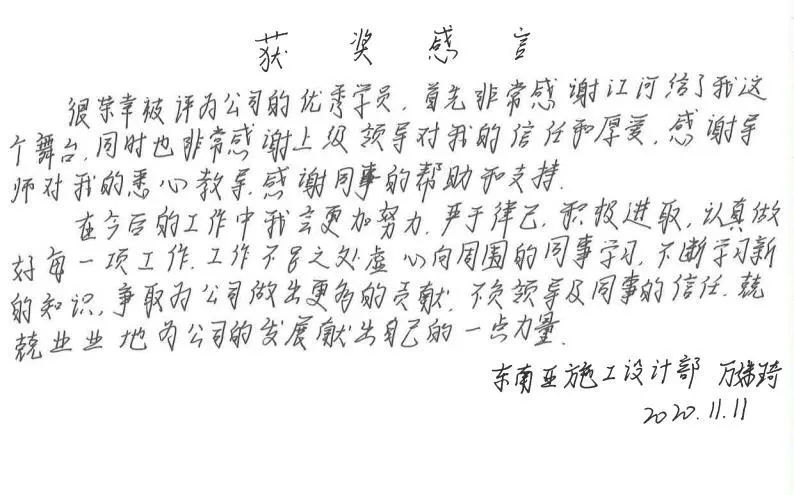 获奖感言
很荣幸被评为公司的优秀学员，首先非常感谢江河给了我这
个舞台，同时也非常感谢上级领导对我的信任和厚爱，感谢导
师对我的悉心教导，感谢同事的帮助和支持.
在今后的工作中我会更加努力，严于律己，积极进取，认真做
好每一项工作.工作不足之处虚心向周围的同事学习，不断学习新
的知识，争取为公司做出更多的贡献，不负领导及同事的信任，兢
兢业业地为公司的发展献出自己的一点力量.
东南亚施工设计部 万 琦
2020.11.11